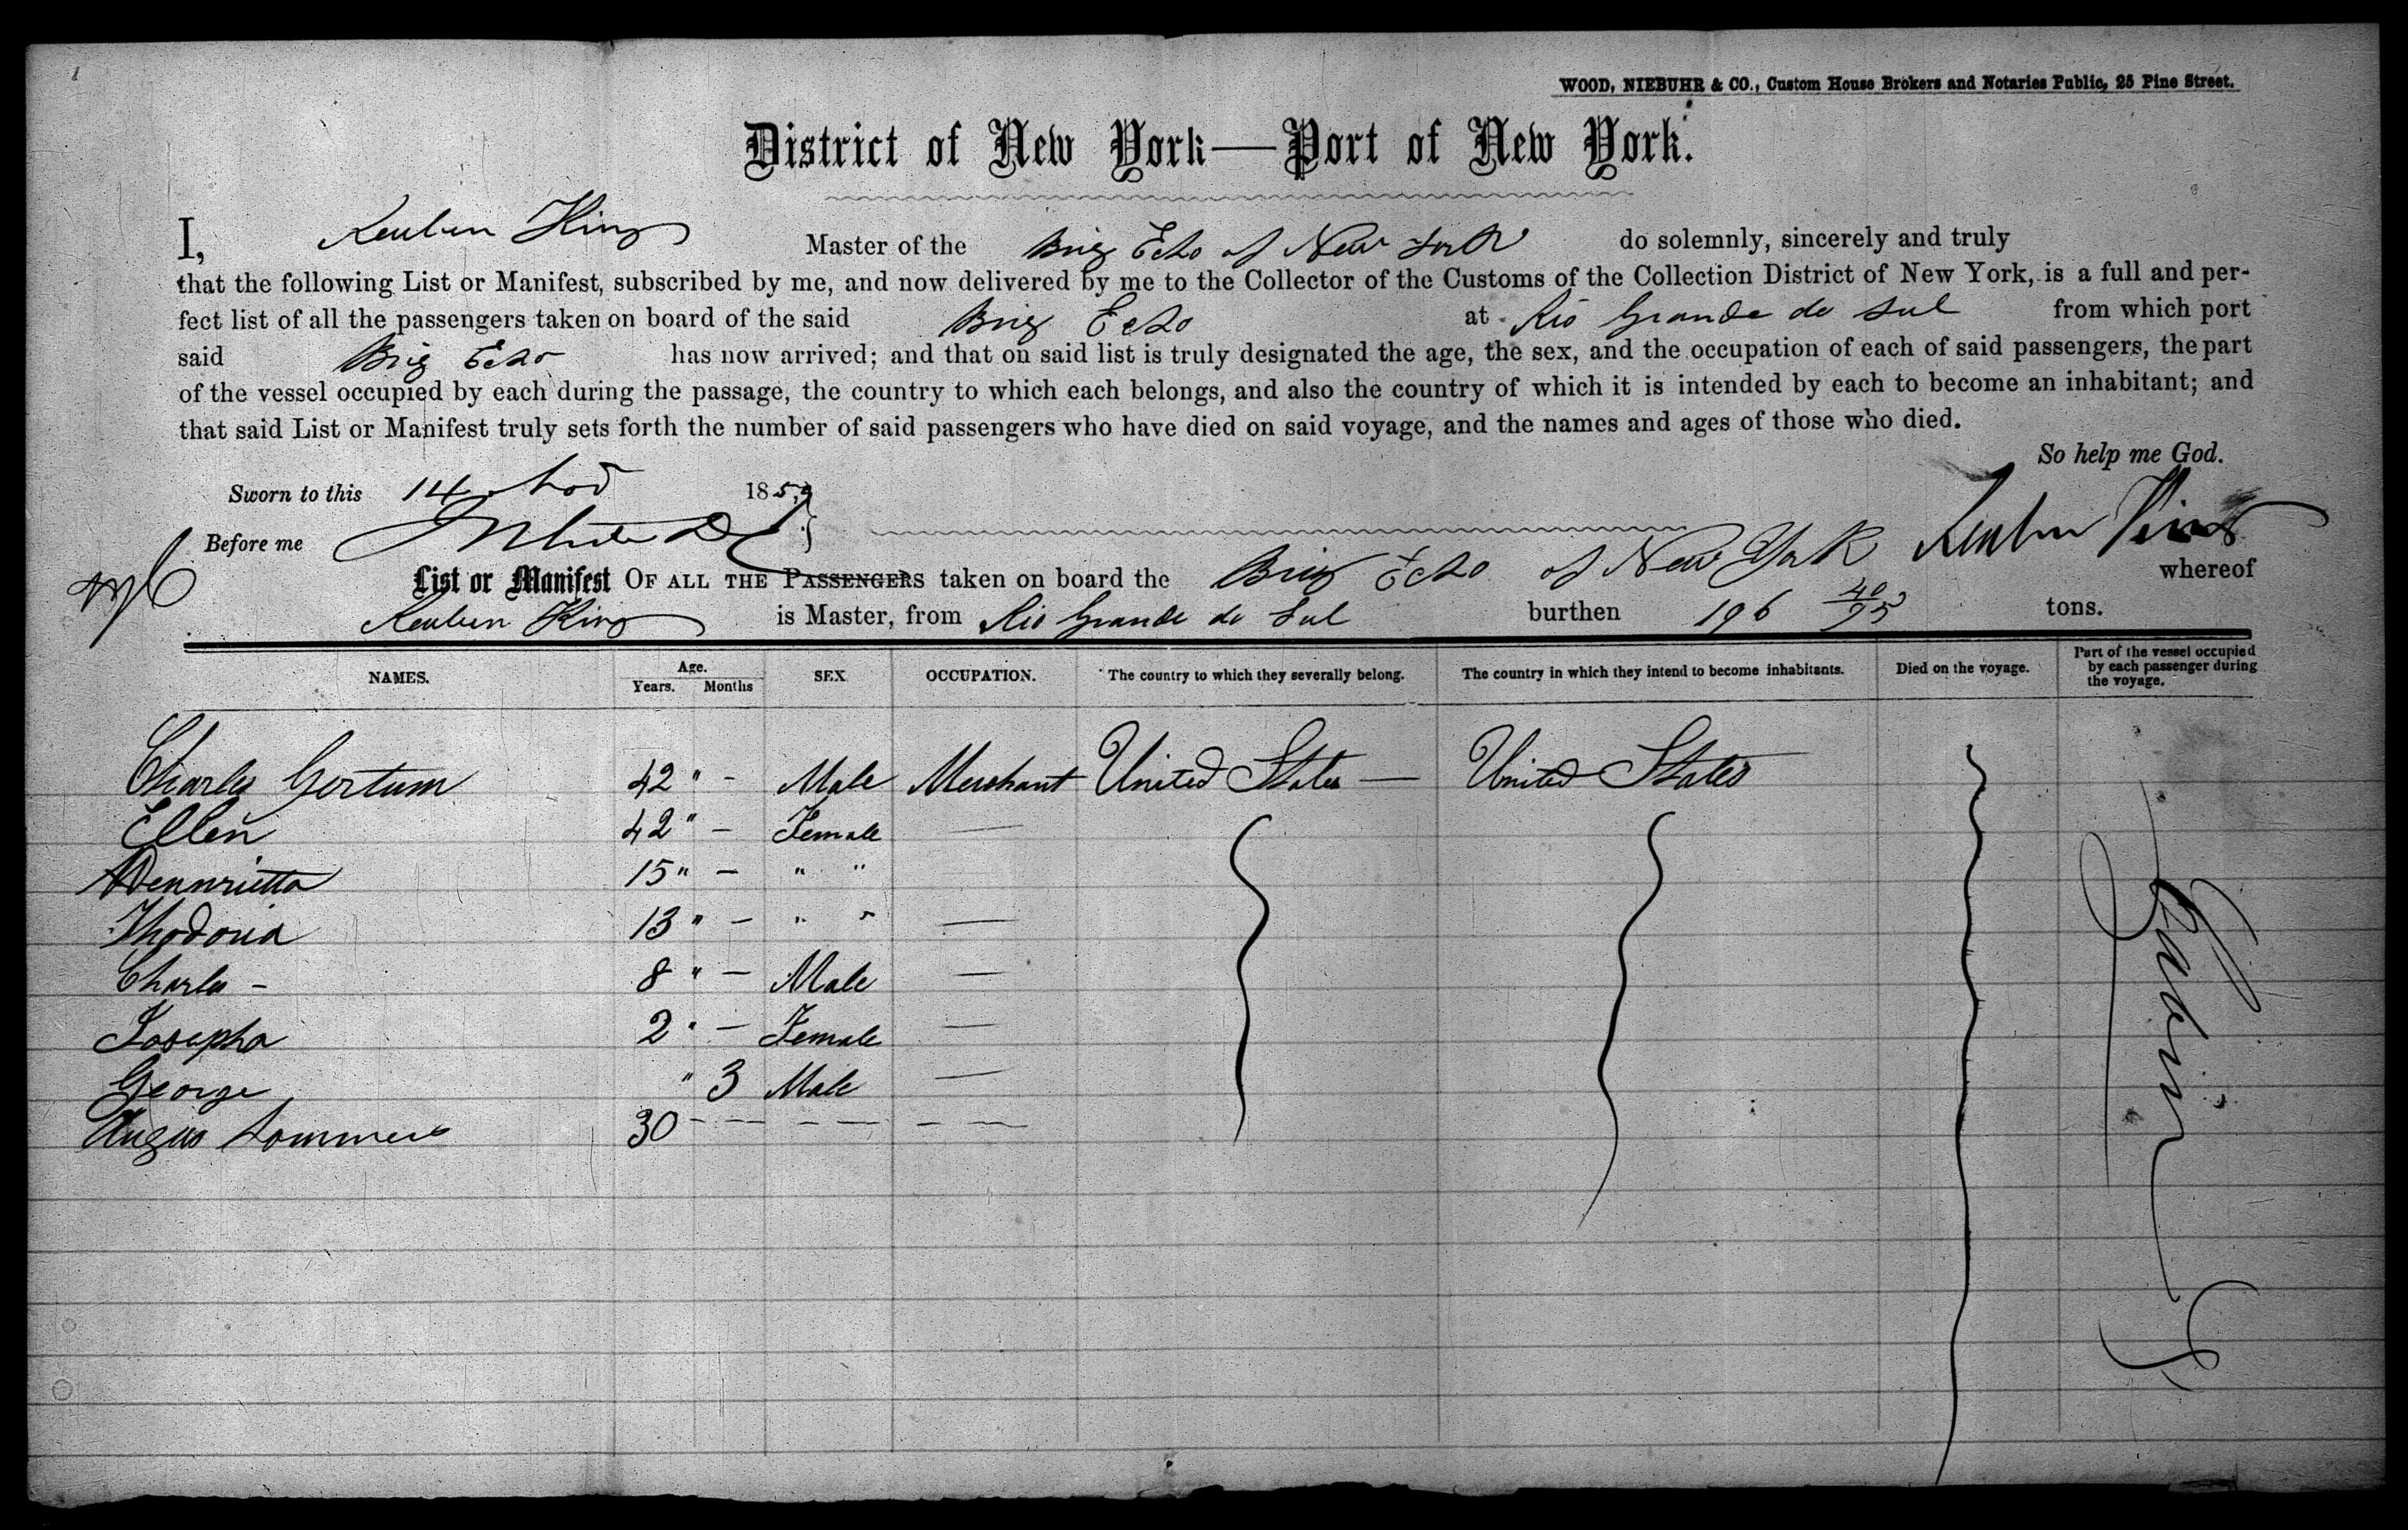 WOOD, NIEBUHR & CO., Custom House Brokers and Notaries Public, 25 Pine Street.
District of New York—Port of New York.
I, Reuben King Master of the Brig Echo of New York do solemnly, sincerely and truly
that the following List or Manifest, subscribed by me, and now delivered by me to the Collector of the Customs of the Collection District of New York, is a full and per-
fect list of all the passengers taken on board of the said Brig Echo at Rio Grande do Sul from which port
said Brig Echo has now arrived; and that on said list is truly designated the age, the sex, and the occupation of each of said passengers, the part
of the vessel occupied by each during the passage, the country to which each belongs, and also the country of which it is intended by each to become an inhabitant; and
that said List or Manifest truly sets forth the number of said passengers who have died on said voyage, and the names and ages of those who died.
So help me God.
Sworn to this 14 Nov 1859
Before me Reuben King
List or Manifest OF ALL THE PASSENGERS taken on board the Brig Echo of New York whereof
Reuben King is Master, from Rio Grande do Sul burthen 196 40/95 tons.
NAMES. Age. Years. Months SEX OCCUPATION. The country to which they severally belong. The country in which they intend to become inhabitants. Died on the voyage. Part of the vessel occupied by each passenger during the voyage.
Charles Gortum 42 " - Male Merchant United States — United States
Ellen 42 " - Female —
Hennrietta 15 " - " "
Thodoria 13 " - " " —
Charles - 8 " - Male —
Josepha 2 " - Female —
George " 3 Male —
Angus Sommers 30 - - - - - -
Cabin